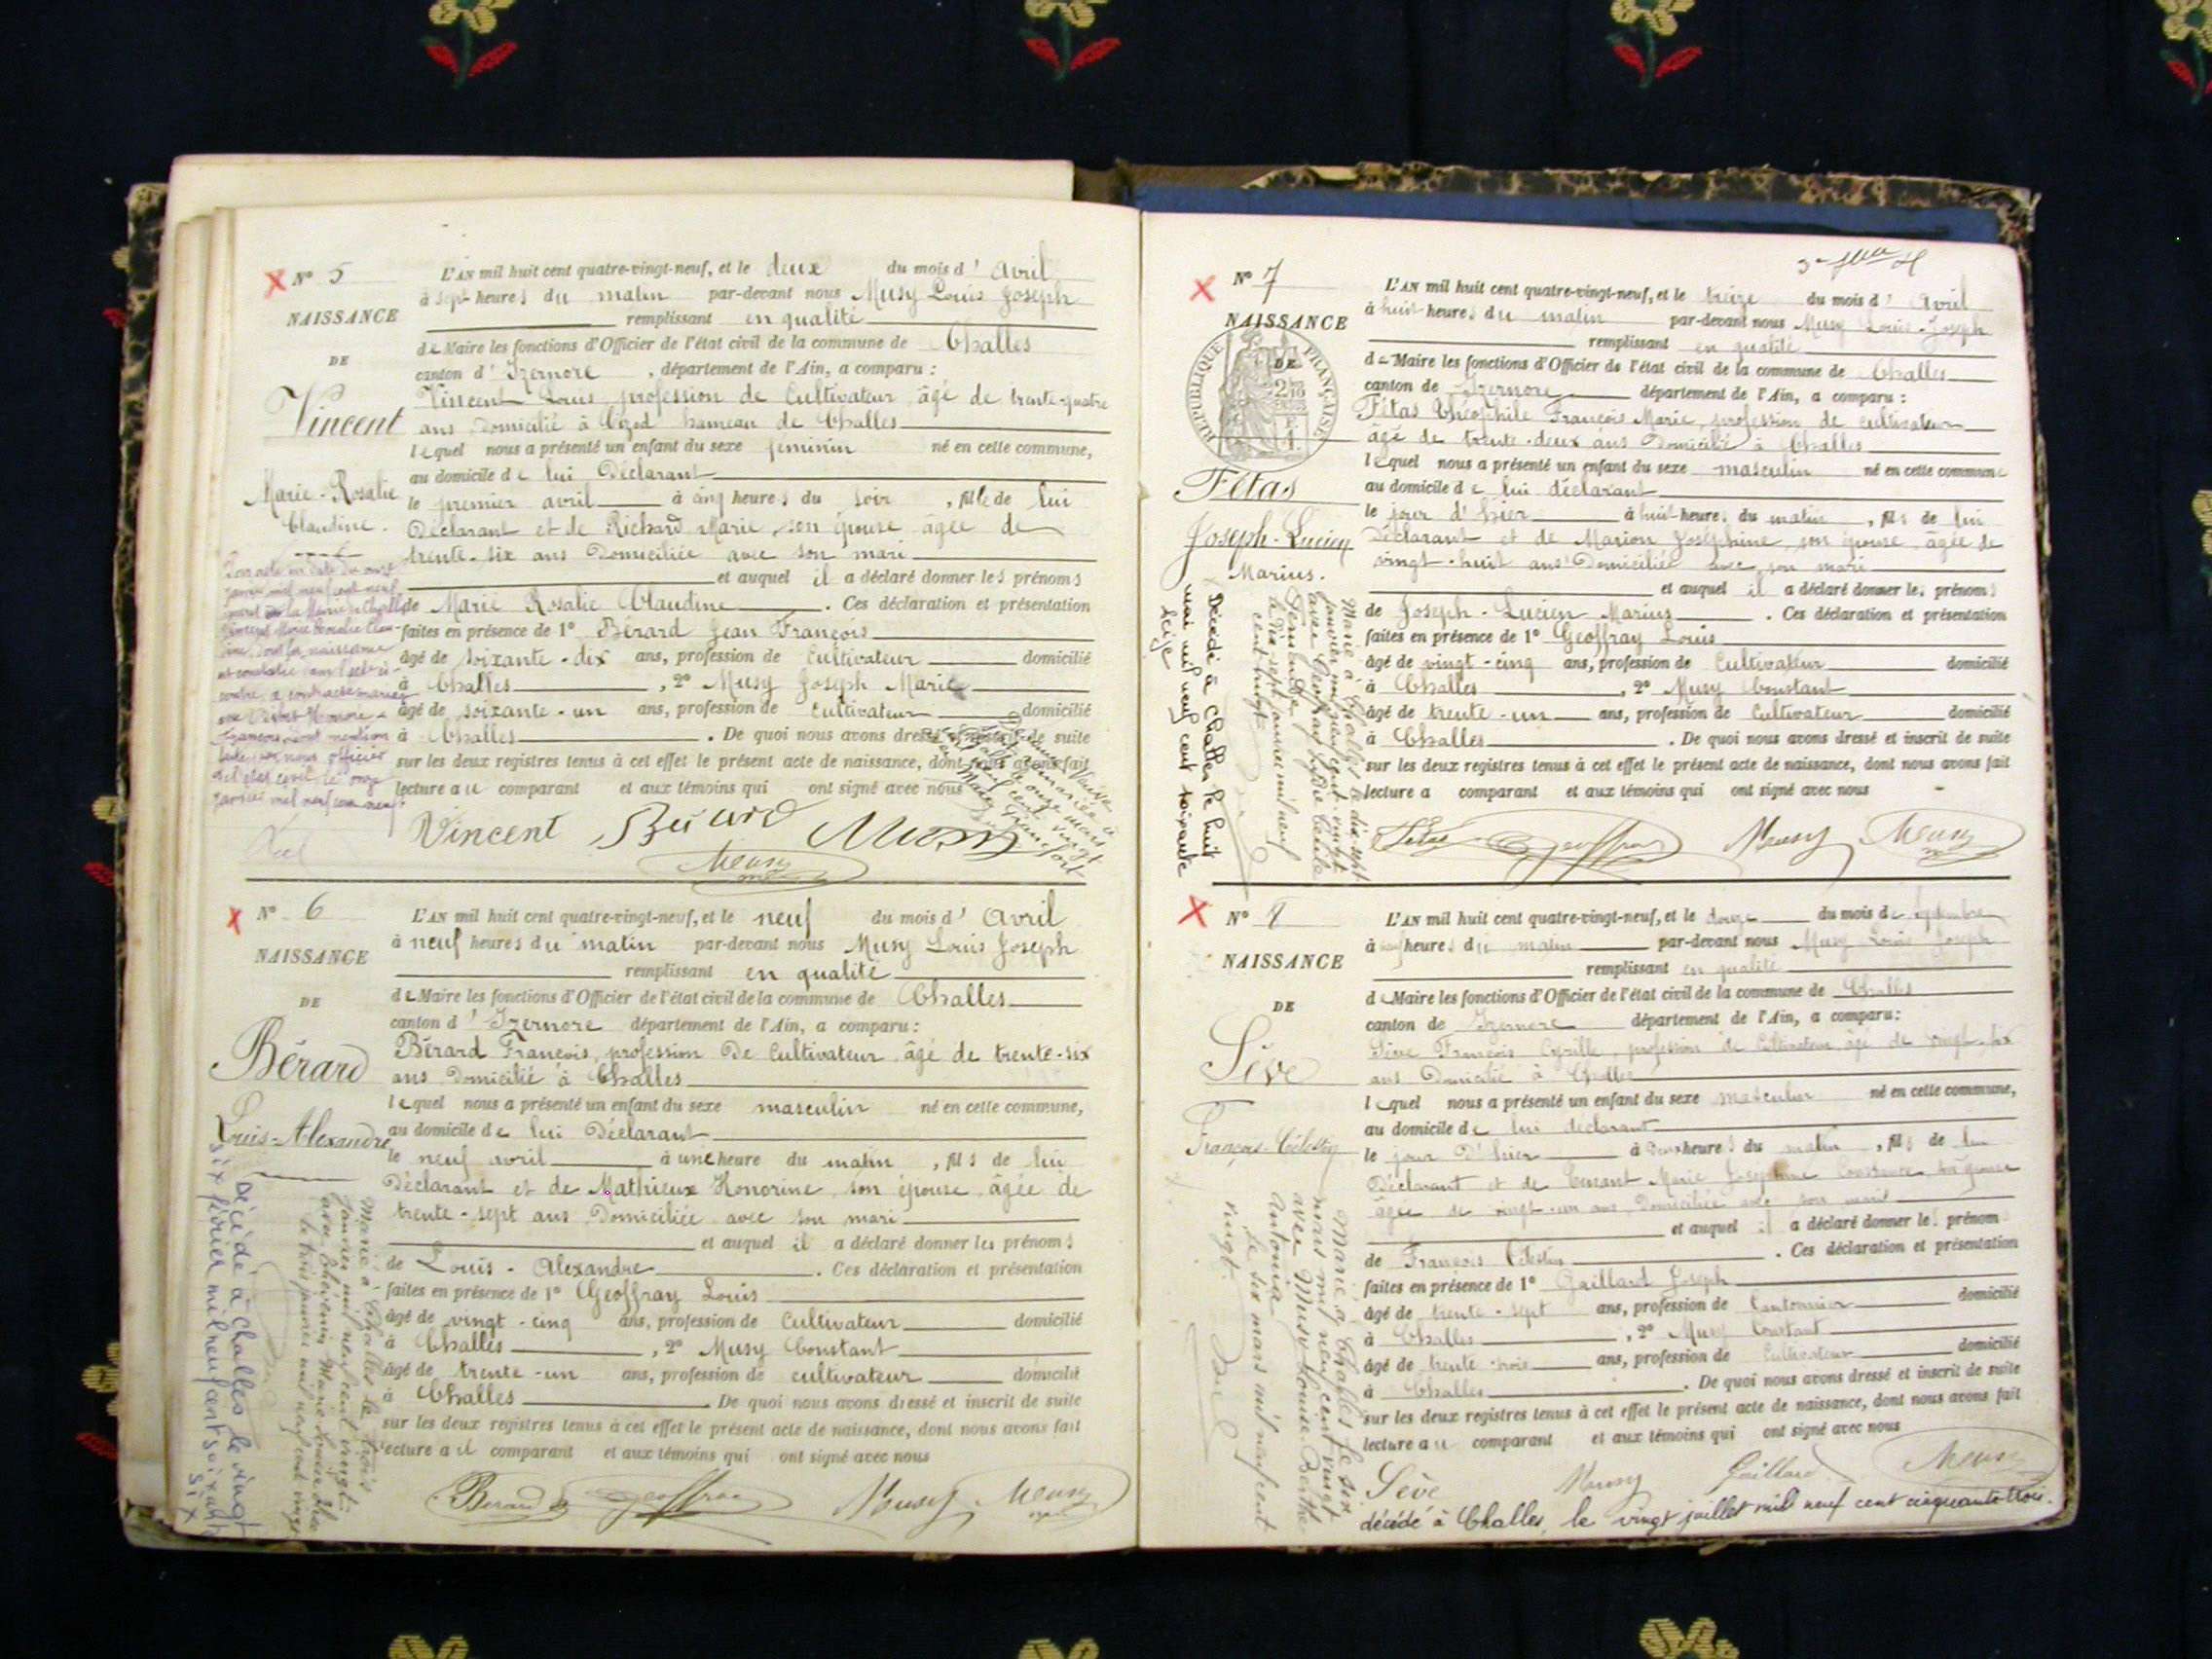 N° 5
NAISSANCE
DE
Vincent
Marie-Rosalie
Claudine.
L'AN mil huit cent quatre-vingt-neuf, et le deux du mois d' Avril
à sept heures du matin par-devant nous Musy Louis Joseph
remplissant en qualité
de Maire les fonctions d'Officier de l'état civil de la commune de Challes
canton d' Izernore, département de l'Ain, a comparu :
Vincent Louis, profession de Cultivateur âgé de trente-quatre
ans Domicilié à Cizod hameau de Challes
lequel nous a présenté un enfant du sexe feminin né en cette commune,
au domicile de lui Déclarant
le premier avril à cinq heures du soir, fille de lui
Déclarant et de Richard Marie, son épouse âgée de
trente-six ans Domiciliée avec son mari
et auquel il a déclaré donner les prénoms
de Marie Rosalie Claudine. Ces déclaration et présentation
faites en présence de 1° Bérard Jean François
âgé de soixante-dix ans, profession de Cultivateur domicilié
à Challes, 2° Musy Joseph Marie
âgé de soixante-un ans, profession de Cultivateur domicilié
à Challes. De quoi nous avons dressé et inscrit de suite
sur les deux registres tenus à cet effet le présent acte de naissance, dont nous avons fait
lecture au comparant et aux témoins qui ont signé avec nous
Vincent Bérard Musy
Musy
N° 6
NAISSANCE
DE
Bérard
Louis-Alexandre
L'AN mil huit cent quatre-vingt-neuf, et le neuf du mois d' Avril
à neuf heures du matin par-devant nous Musy Louis Joseph
remplissant en qualité
de Maire les fonctions d'Officier de l'état civil de la commune de Challes
canton d' Izernore département de l'Ain, a comparu :
Bérard François, profession De Cultivateur âgé de trente-six
ans Domicilié à Challes
lequel nous a présenté un enfant du sexe masculin né en cette commune,
au domicile de lui Déclarant
le neuf avril à une heure du matin, fils de lui
Déclarant et de Mathieux Honorine, son épouse âgée de
trente-sept ans Domiciliée avec son mari
et auquel il a déclaré donner les prénoms
de Louis-Alexandre. Ces déclaration et présentation
faites en présence de 1° Geoffray Louis
âgé de vingt-cinq ans, profession de Cultivateur domicilié
à Challes, 2° Musy Constant
âgé de trente-un ans, profession de cultivateur domicilié
à Challes. De quoi nous avons dressé et inscrit de suite
sur les deux registres tenus à cet effet le présent acte de naissance, dont nous avons fait
lecture au comparant et aux témoins qui ont signé avec nous
Bérard Geoffray Musy Musy
Marié à Challes le trois
janvier mil neuf cent vingt
avec Chevenin Marie Louise
le trois janvier mil neuf cent vingt
Décédé à Challes le vingt
six février mil neuf cent soixante
six
N° 7
NAISSANCE
DE
RÉPUBLIQUE FRANÇAISE
Fétas
Joseph-Lucien
Marius.
L'AN mil huit cent quatre-vingt-neuf, et le treize du mois d' Avril
à huit heures du matin par-devant nous Musy Louis-Joseph
remplissant en qualité
de Maire les fonctions d'Officier de l'état civil de la commune de Challes
canton de Izernore département de l'Ain, a comparu :
Fétas Théophile François Marie, profession de cultivateur
âgé de trente-deux ans Domicilié à Challes
lequel nous a présenté un enfant du sexe masculin né en cette commune
au domicile de lui déclarant
le jour d'hier à huit heures du matin, fils de lui
Déclarant et de Marion Joséphine, son épouse âgée de
vingt-huit ans Domiciliée avec son mari
et auquel il a déclaré donner les prénoms
de Joseph-Lucien Marius. Ces déclaration et présentation
faites en présence de 1° Geoffray Louis
âgé de vingt-cinq ans, profession de Cultivateur domicilié
à Challes, 2° Musy Constant
âgé de trente-un ans, profession de Cultivateur domicilié
à Challes. De quoi nous avons dressé et inscrit de suite
sur les deux registres tenus à cet effet le présent acte de naissance, dont nous avons fait
lecture a comparant et aux témoins qui ont signé avec nous
Fétas Geoffray Musy Musy
Marié à Challes le dix-sept
janvier mil neuf cent vingt
avec Geoffray
le dix sept janvier mil neuf
cent vingt
Décédé à Challes le huit
mai mil neuf cent soixante
seize
N°
NAISSANCE
DE
Sève
François-Célestin
L'AN mil huit cent quatre-vingt-neuf, et le douze du mois de septembre
à heures du matin par-devant nous Musy Louis Joseph
remplissant en qualité
de Maire les fonctions d'Officier de l'état civil de la commune de Challes
canton de Izernore département de l'Ain, a comparu :
Sève François Cyrille, profession de Cultivateur âgé de vingt-six
ans Domicilié à Challes
lequel nous a présenté un enfant du sexe masculin né en cette commune,
au domicile de lui déclarant
le jour D'hier à deux heures du matin, fils de lui
Déclarant et de Marie Joséphine Constance, son épouse
âgée de vingt-un ans, Domiciliée avec son mari
et auquel il a déclaré donner les prénom
de François Célestin. Ces déclaration et présentation
faites en présence de 1° Gaillard Joseph
âgé de trente-sept ans, profession de Cantonnier domicilié
à Challes, 2° Musy Constant
âgé de trente-trois ans, profession de Cultivateur domicilié
à Challes. De quoi nous avons dressé et inscrit de suite
sur les deux registres tenus à cet effet le présent acte de naissance, dont nous avons fait
lecture au comparant et aux témoins qui ont signé avec nous
Sève Musy Gaillard Musy
Marié à Challes le six
mars mil neuf cent vingt
avec Musy Louise Berthe
Antonia
le six mars mil neuf cent
vingt.
décédé à Challes, le vingt juillet mil neuf cent cinquante trois.